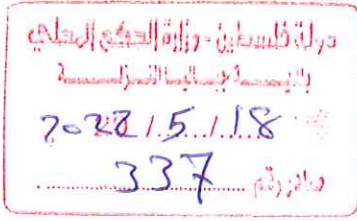 دولة فلسطين - وزارة الحكم المحلي
2022 / 5 / 18
صادر رقم 337